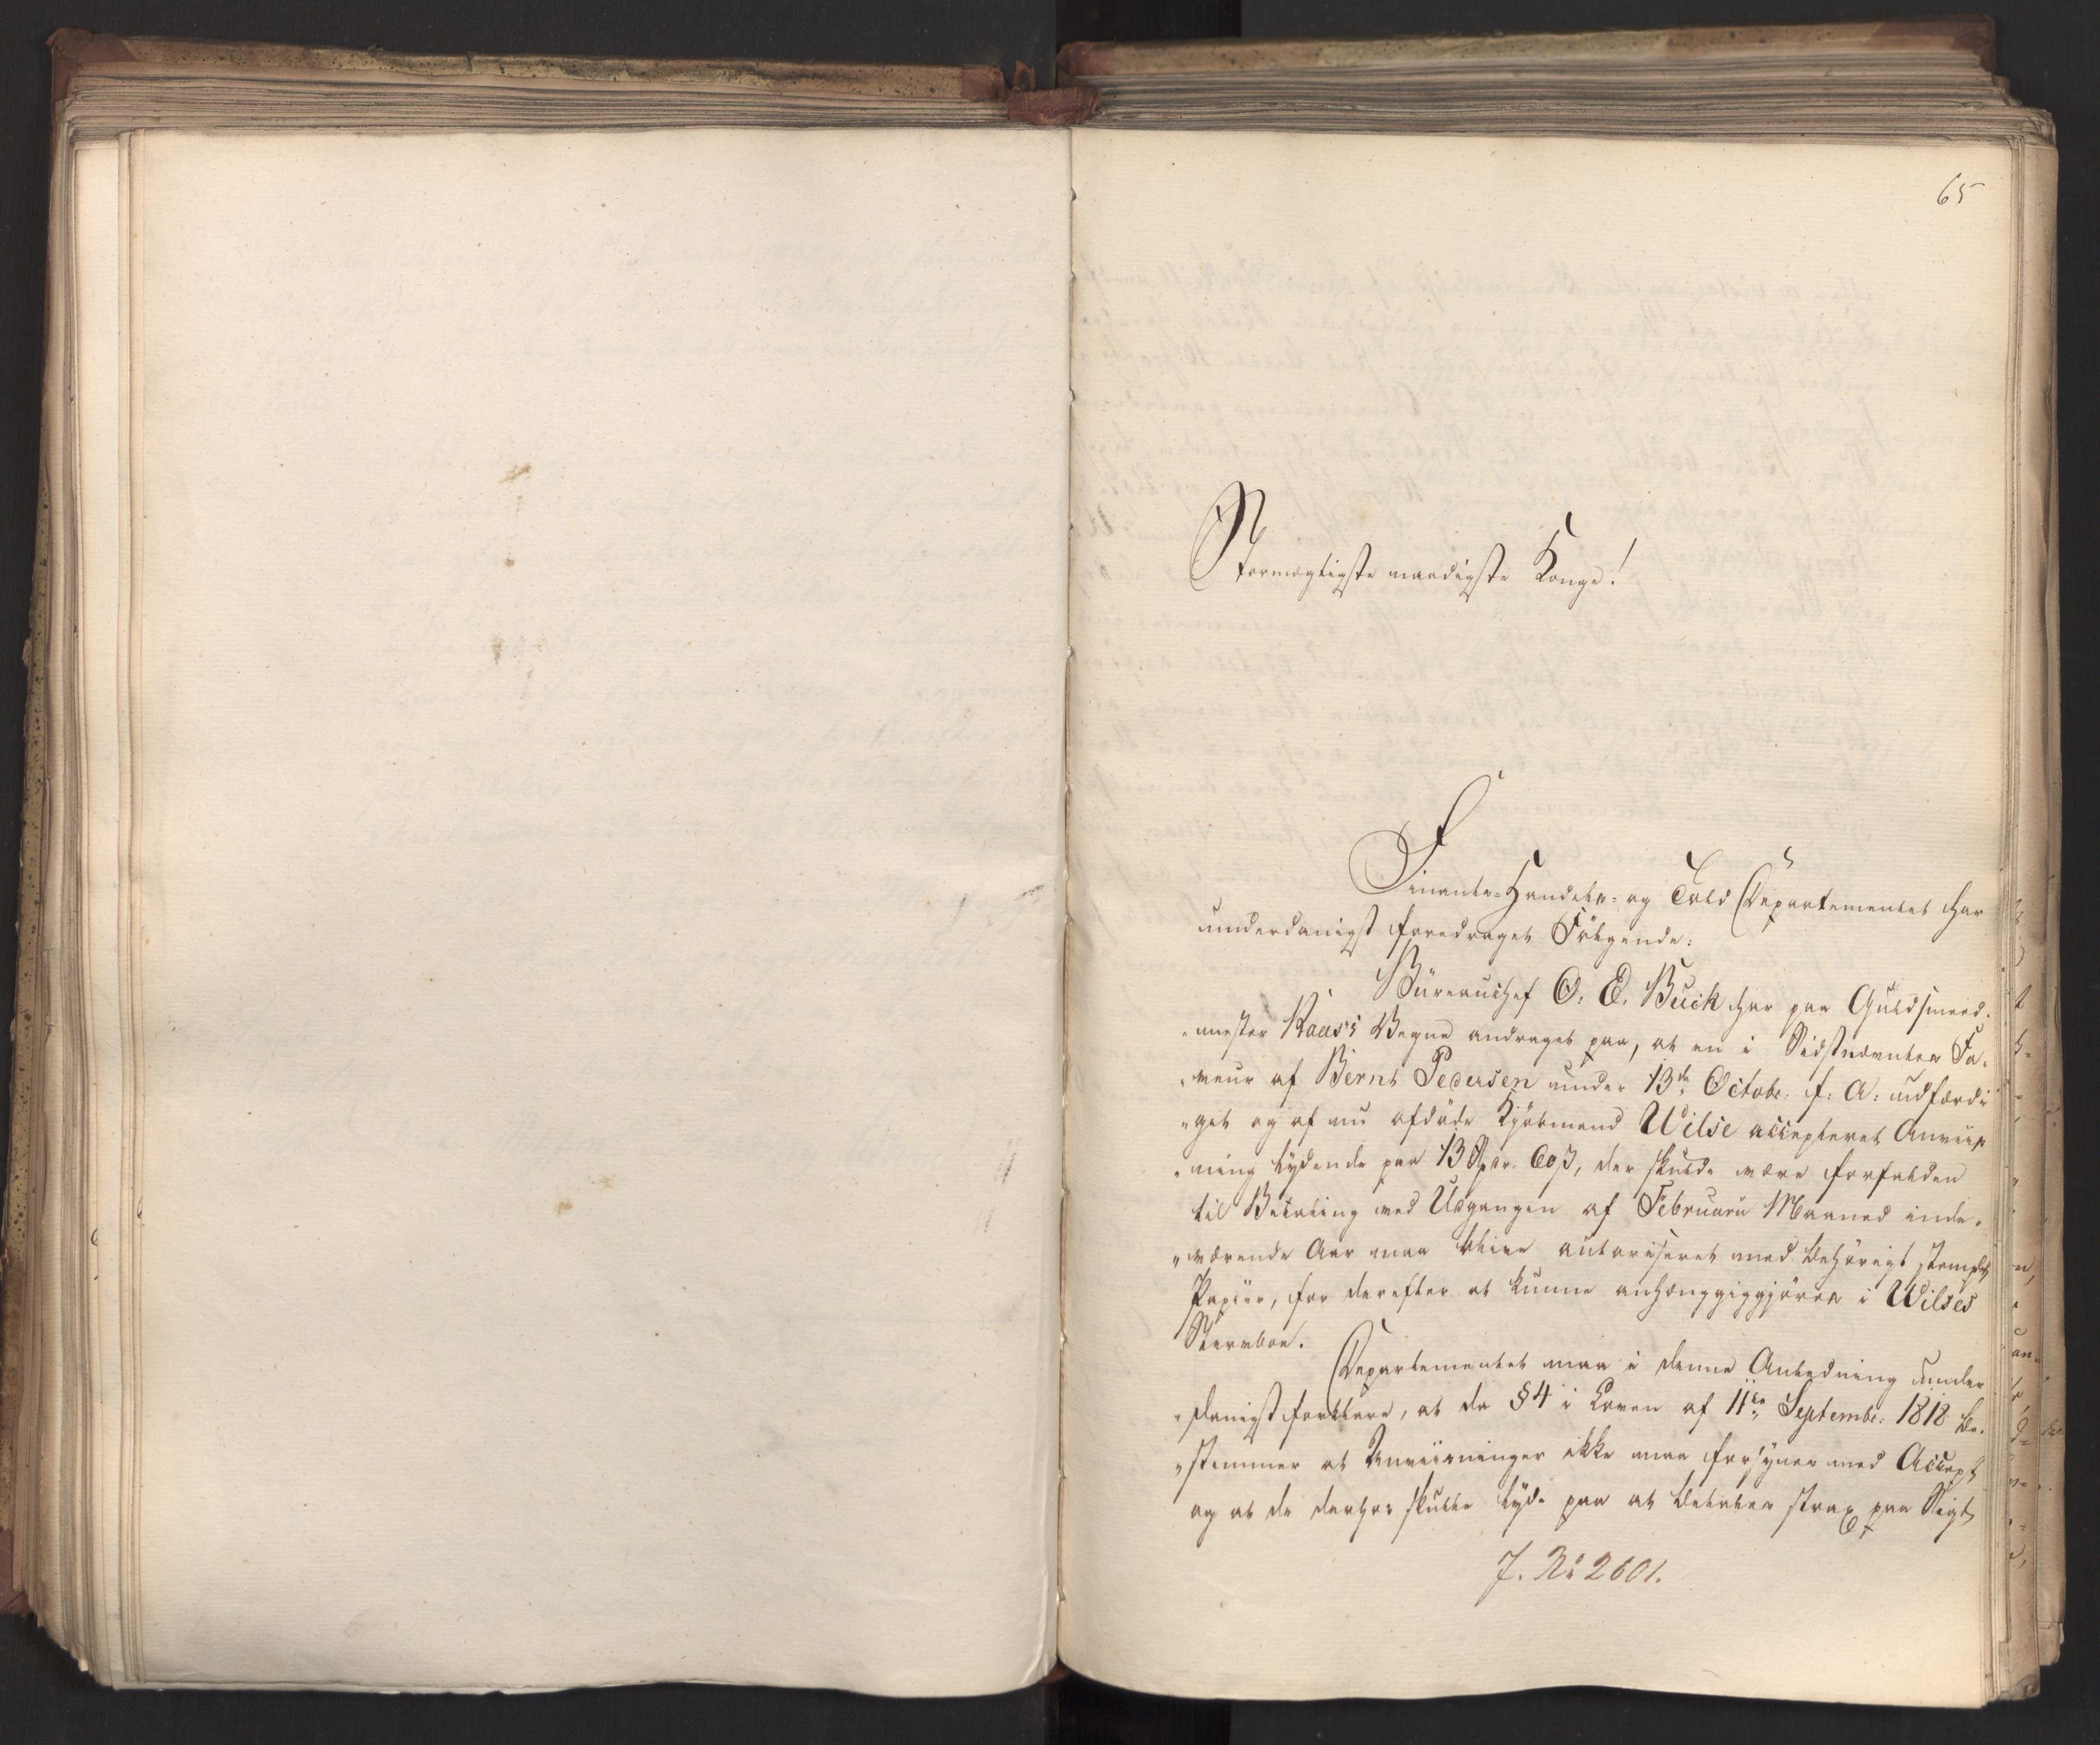 65
Stormægtigste naadigste Konge!
Finants-Handels- og Told Departementet har
underdanigst foredraget Følgende:
Büreauchef O. E. Buck har paa Guldsmed-
"mester Raas's Vegne andraget paa, at en i Sidstnævntes Fa-
"veur af Bernt Pedersen under 13de Octobr: f: A: udfærdi
"get og af nu afdøde Kjøbmand Wilse accepteret Anviis
"ning lydende paa 13 Spdr. 60 ß, der skulde være forfalden
til Betaling ved Udgangen af Februarii Maaned inde-
"værende Aar maa blive autoriseret med behørigt stemplet
Papiir, for derefter at kunne anhængiggjøres i Wilses
Stervboe.
Departementet maa i denne Anledning under
"danigst forklare, at da § 4 i Loven af 11te Septembr: 1818 be-
"stemmer at Anviisninger ikke maa forsynes med Accept
og at de derhos skulle lyde paa at betales strax paa Sigt
J. No 2601.